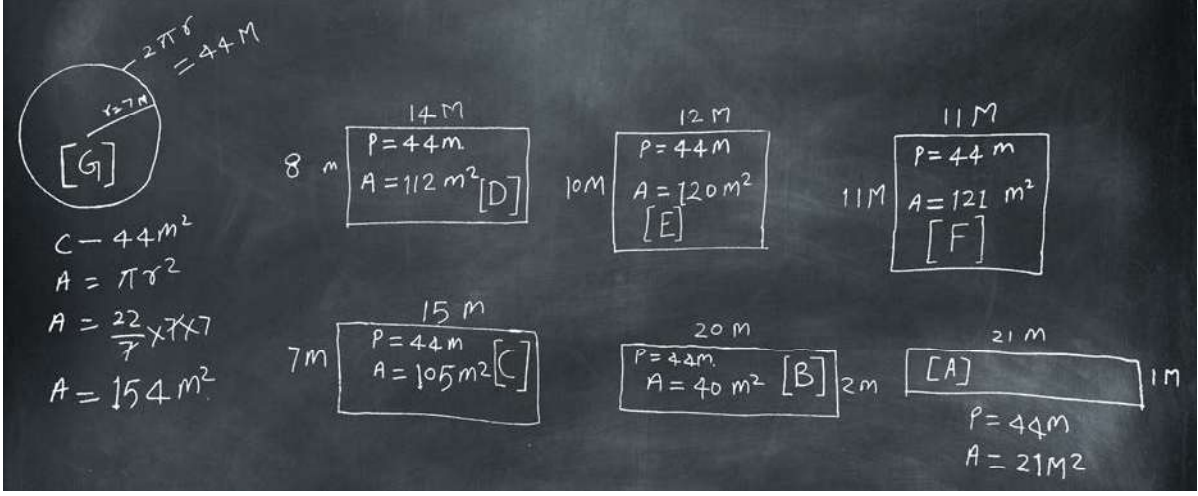 2πr
= 44 M
r=7M
[G]
C - 44m²
A = πr²
A = 22/7 x7x7
A = 154 m²
14 M
8 m
P = 44m
A = 112 m² [D]
12 M
10M
P = 44M
A = 120 m²
[E]
11 M
11M
P = 44 m
A = 121 m²
[F]
15 m
7M
P = 44m
A = 105 m² [C]
20 M
P = 44m
A = 40 m² [B]
2m
21 M
[A]
1M
P = 44m
A = 21M2